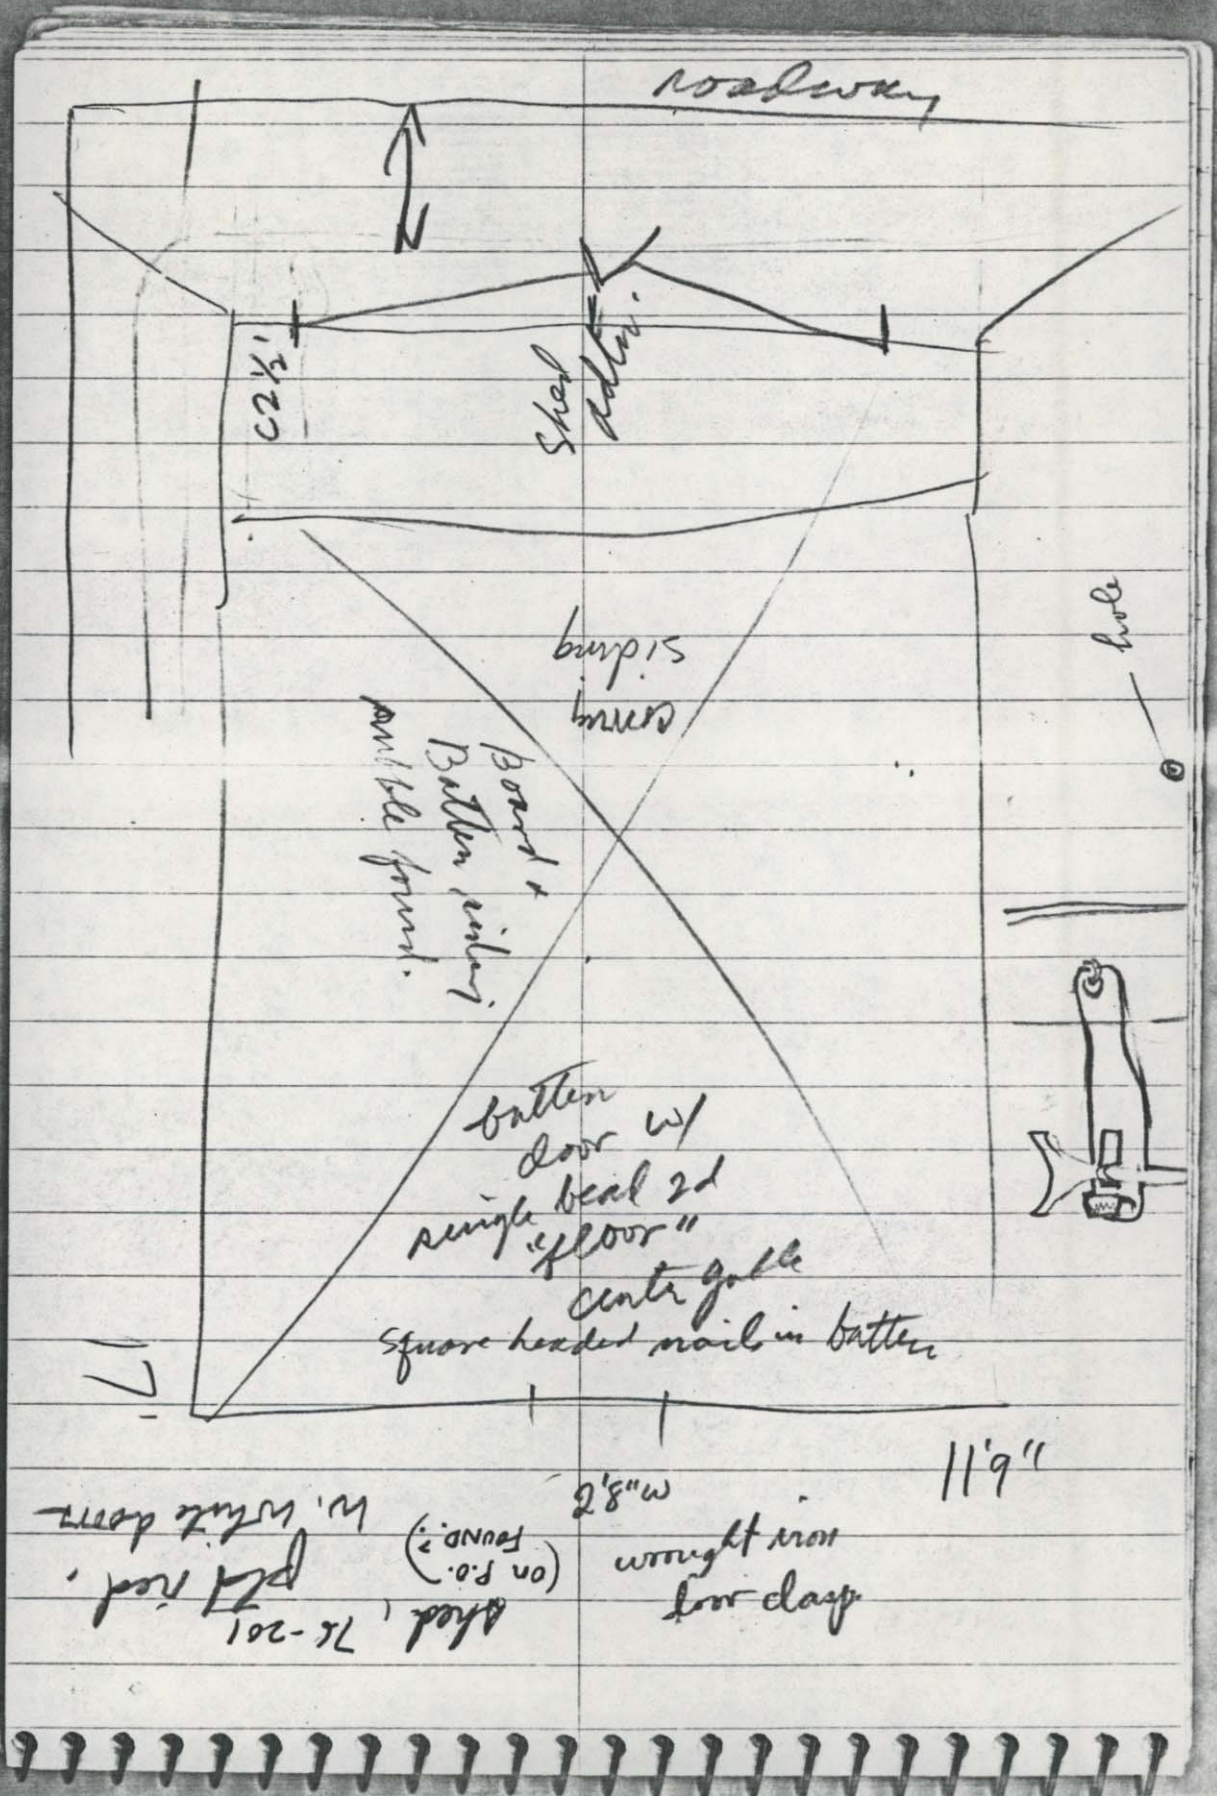 roadway
C2½'
shed
addtn.
hole
corrug
siding
Board +
Batten siding
rubble found.
batten
door w/
single bead 2d
"floor"
center gable
square headed nails in batten
17'
11'9"
2'8" w
wrought iron
door clasp.
shed, 76-201
(on P.O.
FOUND.?)
ptd red.
w. white doors